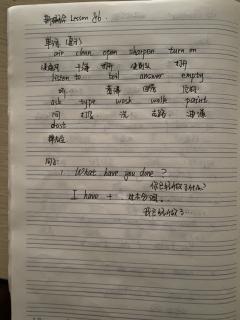 新概念 Lesson 86
单词 (重了)
air clean open sharpen turn on
打开 打开
listen to boil answer empty
听 煮沸 回答
ask type wash walk paint
问 打字 洗 走路
dust
句子:
What have you done ?
你已经做了什么?
I have + 过去分词.
我已经做了...